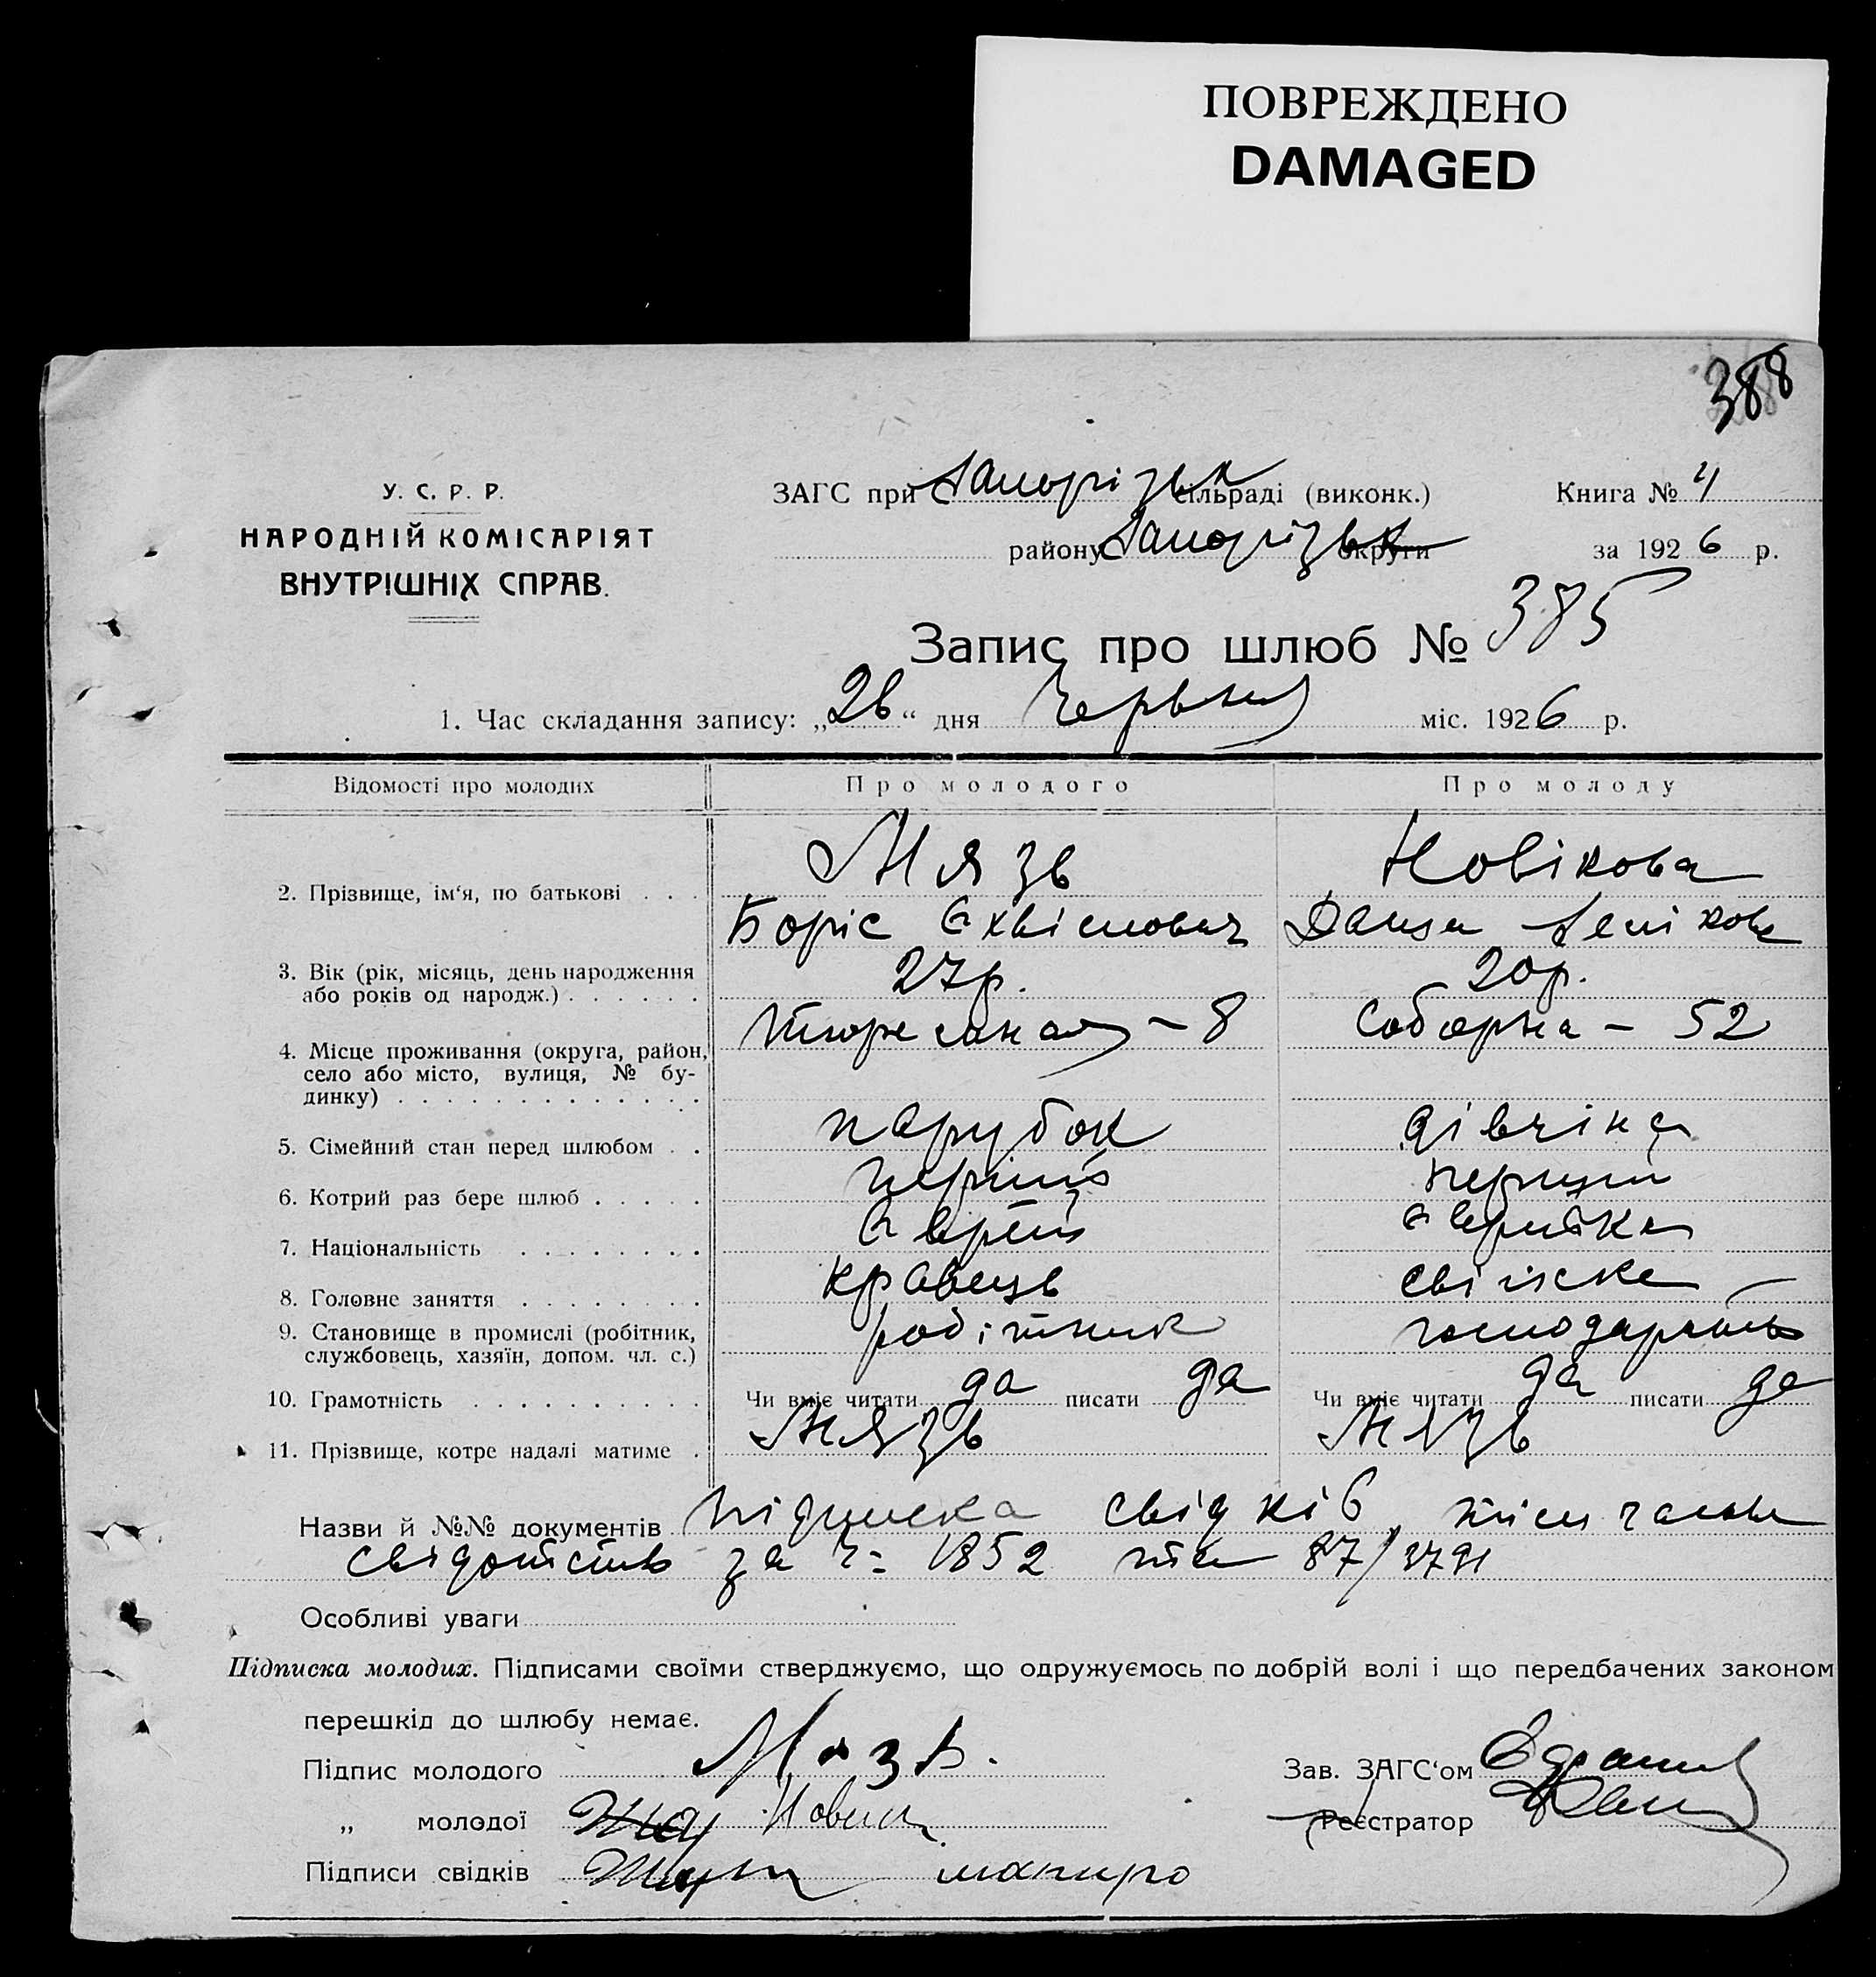 ПОВРЕЖДЕНО
DAMAGED
388
У. С. Р. Р.
НАРОДНІЙ КОМІСАРІЯТ
ВНУТРІШНІХ СПРАВ.
ЗАГС при Запорізьк сільраді (виконк.) Книга № 4
району Запорізьк округи за 1926 р.
Запис про шлюб № 385
1. Час складання запису: „26“ дня Червня міс. 1926 р.
Відомості про молодих Про молодого Про молоду
2. Прізвище, ім‘я, по батькові . . . Мязь Новікова
Боріс
3. Вік (рік, місяць, день народження
або років од народж.) . . . . . . 27р. 20р.
4. Місце проживання (округа, район, – 8 Соборна – 52
село або місто, вулиця, № бу-
динку) . . . . . . . . . . . . .
5. Сімейний стан перед шлюбом . . парубок дівчіна
6. Котрий раз бере шлюб . . . . . перший перший
7. Національність . . . . . . . . Єврей Єврейка
8. Головне заняття . . . . . . . . кравець
9. Становище в промислі (робітник, робітник
службовець, хазяїн, допом. чл. с.)
10. Грамотність . . . . . . . . . . Чи вміє читати да писати да Чи вміє читати да писати да
11. Прізвище, котре надалі матиме . Мязь Мязь
Назви й №№ документів підписка свідків,
за ч= 1852 та 87/3791
Особливі уваги
Підписка молодих. Підписами своїми стверджуємо, що одружуємось по добрій волі і що передбачених законом
перешкід до шлюбу немає.
Підпис молодого Мязь. Зав. ЗАГС‘ом
„ молодої Реєстратор
Підписи свідків